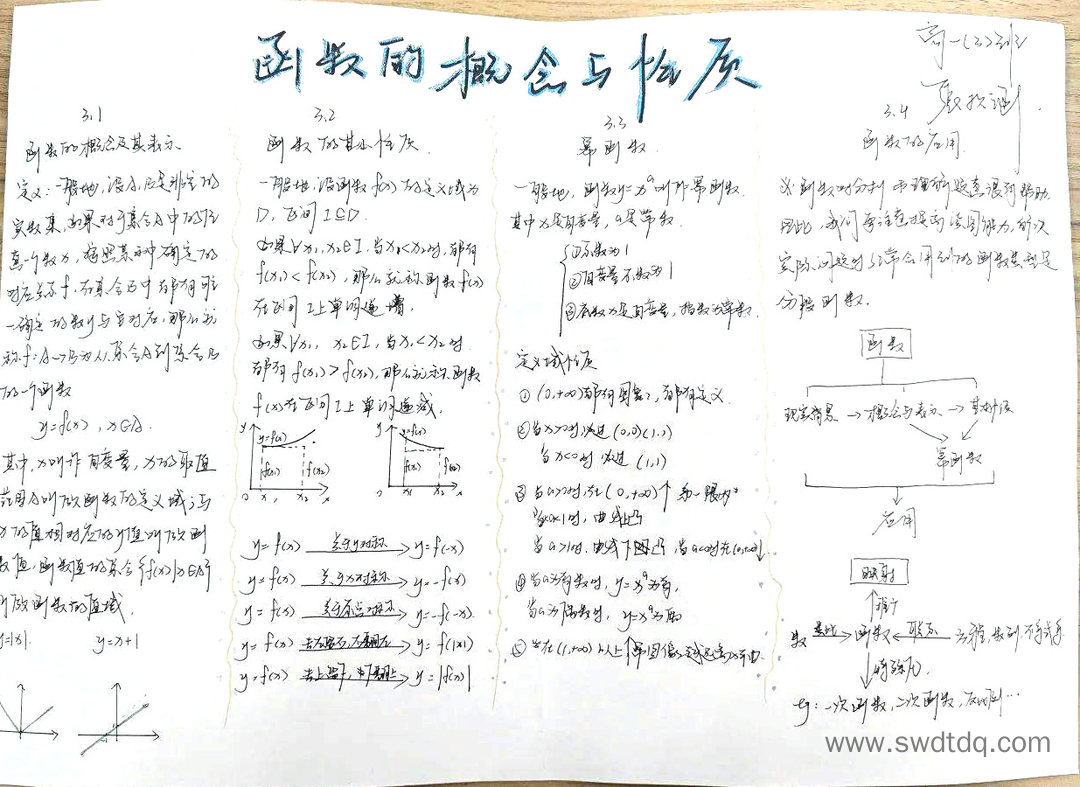 函数的概念与性质
高一(2)班
3.1
函数的概念及其表示
定义:一般地,设A,B是非空的
实数集,如果对于集合A中的任
意一个数x,按照某种确定的
对应关系f,在集合B中都有唯
一确定的数y与它对应,那么就
称f:A→B为从集合A到集合B
的一个函数
y=f(x),x∈A.
其中,x叫作自变量,x的取值
范围A叫做函数的定义域;与
x的值相对应的y值叫做函
数值,函数值的集合{f(x)|x∈A}
叫做函数的值域.
y=|x|. y=x+1
3.2
函数的基本性质
一般地,设函数f(x)的定义域为
D,区间I⊆D.
如果∀x₁,x₂∈I,当x₁<x₂时,都有
f(x₁)<f(x₂),那么就称函数f(x)
在区间I上单调递增.
如果∀x₁,x₂∈I,当x₁<x₂时
都有f(x₁)>f(x₂),那么就称函数
f(x)在区间I上单调递减.
y y=f(x) f(x₁) f(x₂) 0 x₁ x₂ x
y y=f(x) f(x₁) f(x₂) 0 x₁ x₂ x
y=f(x) 关于y对称 y=f(-x)
y=f(x) 关于x对称 y=-f(x)
y=f(x) 关于原点对称 y=-f(-x)
y=f(x) 去左留右,右翻左 y=f(|x|)
y=f(x) 去下翻上 y=|f(x)|
3.3
幂函数
一般地,函数y=xᵅ叫作幂函数
其中x是自变量,α是常数
①系数为1
②自变量系数为1
③底数x是自变量,指数为常数
定义域性质
①(0,+∞)都有图象,都有定义
②当α>0时,过(0,0)(1,1)
当α<0时 过(1,1)
③当α>0时,在(0,+∞)↑
当α>1时,曲线下凸,当α<0时在(0,+∞)↓
当α为偶数时,y=xᵅ为偶
3.4
函数的应用
义.函数对分析和理解题意很有帮助
因此,我们要注意提高读图能力,解决
实际问题时经常会用到的函数类型是
分段函数.
函数
现实背景→概念与表示→基本性质
幂函数
应用
映射
推广
数 类比 函数 联系 方程,数列,不等式等
特殊化
e.g:一次函数,二次函数,反比例…
www.swdtdq.com